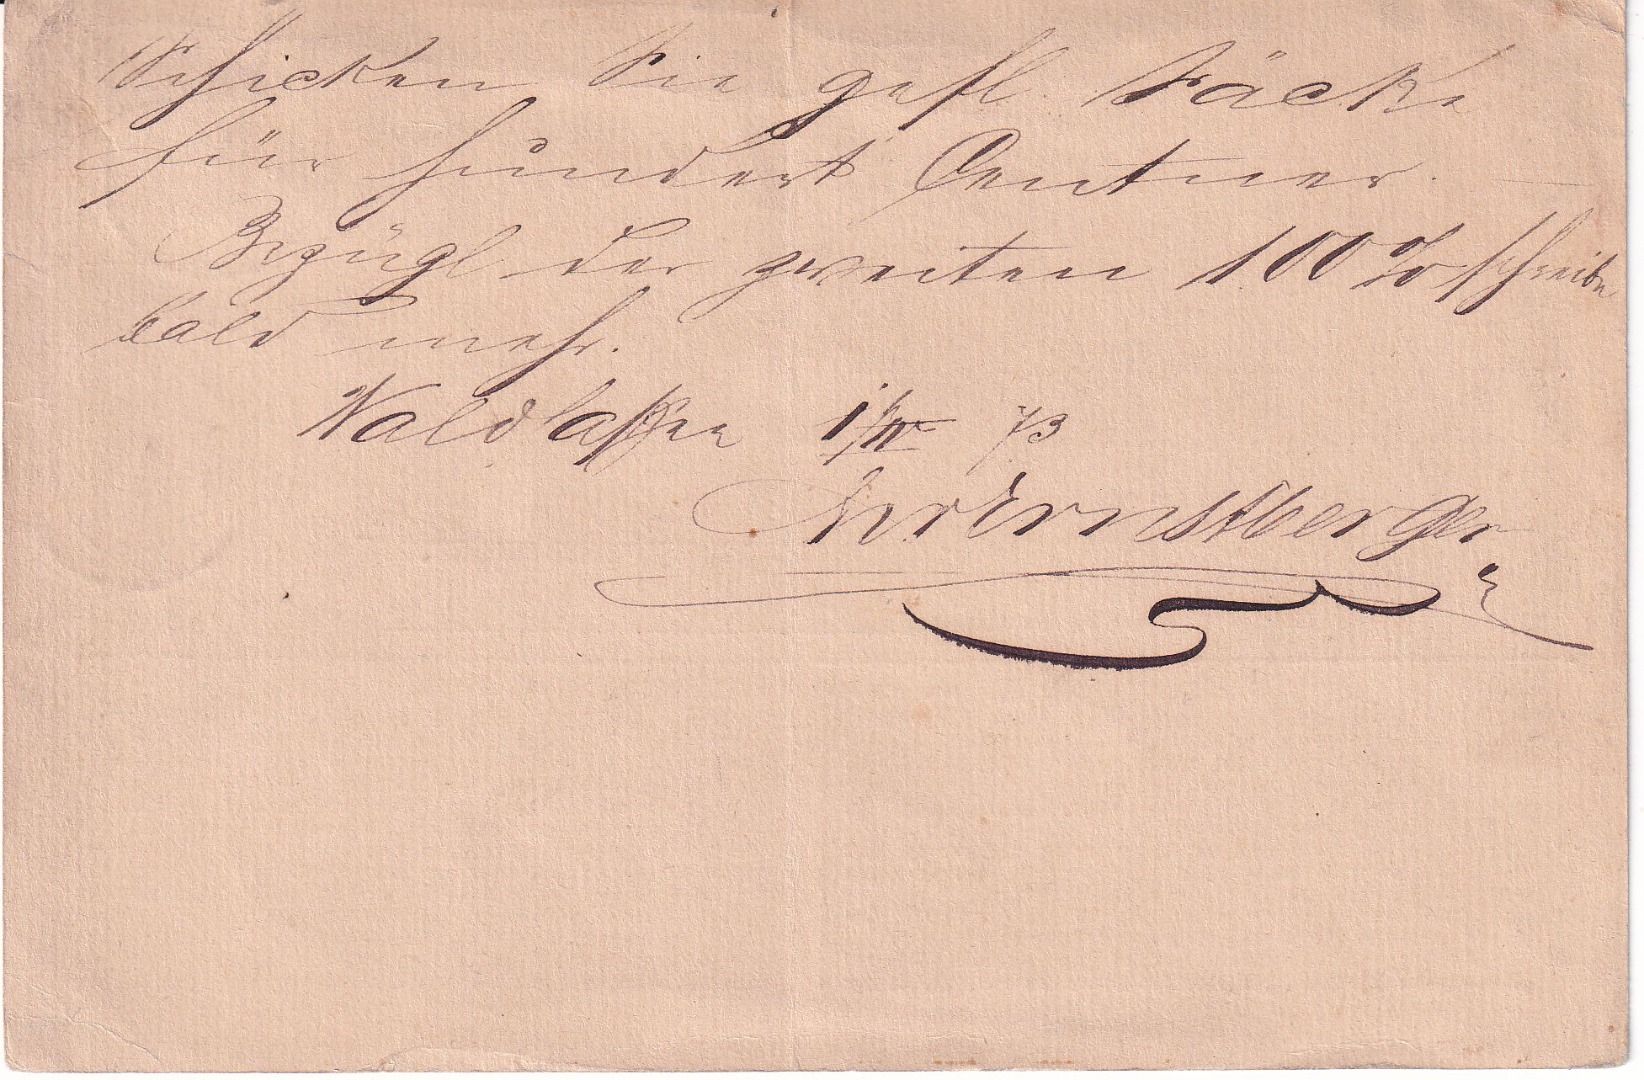 Schicken Sie gefl. Säcke
für hundert Centner.
Bezügl der zweiten 100 % schreibe
bald mehr.
Waldsassen 1/IV 73
Ernstberger